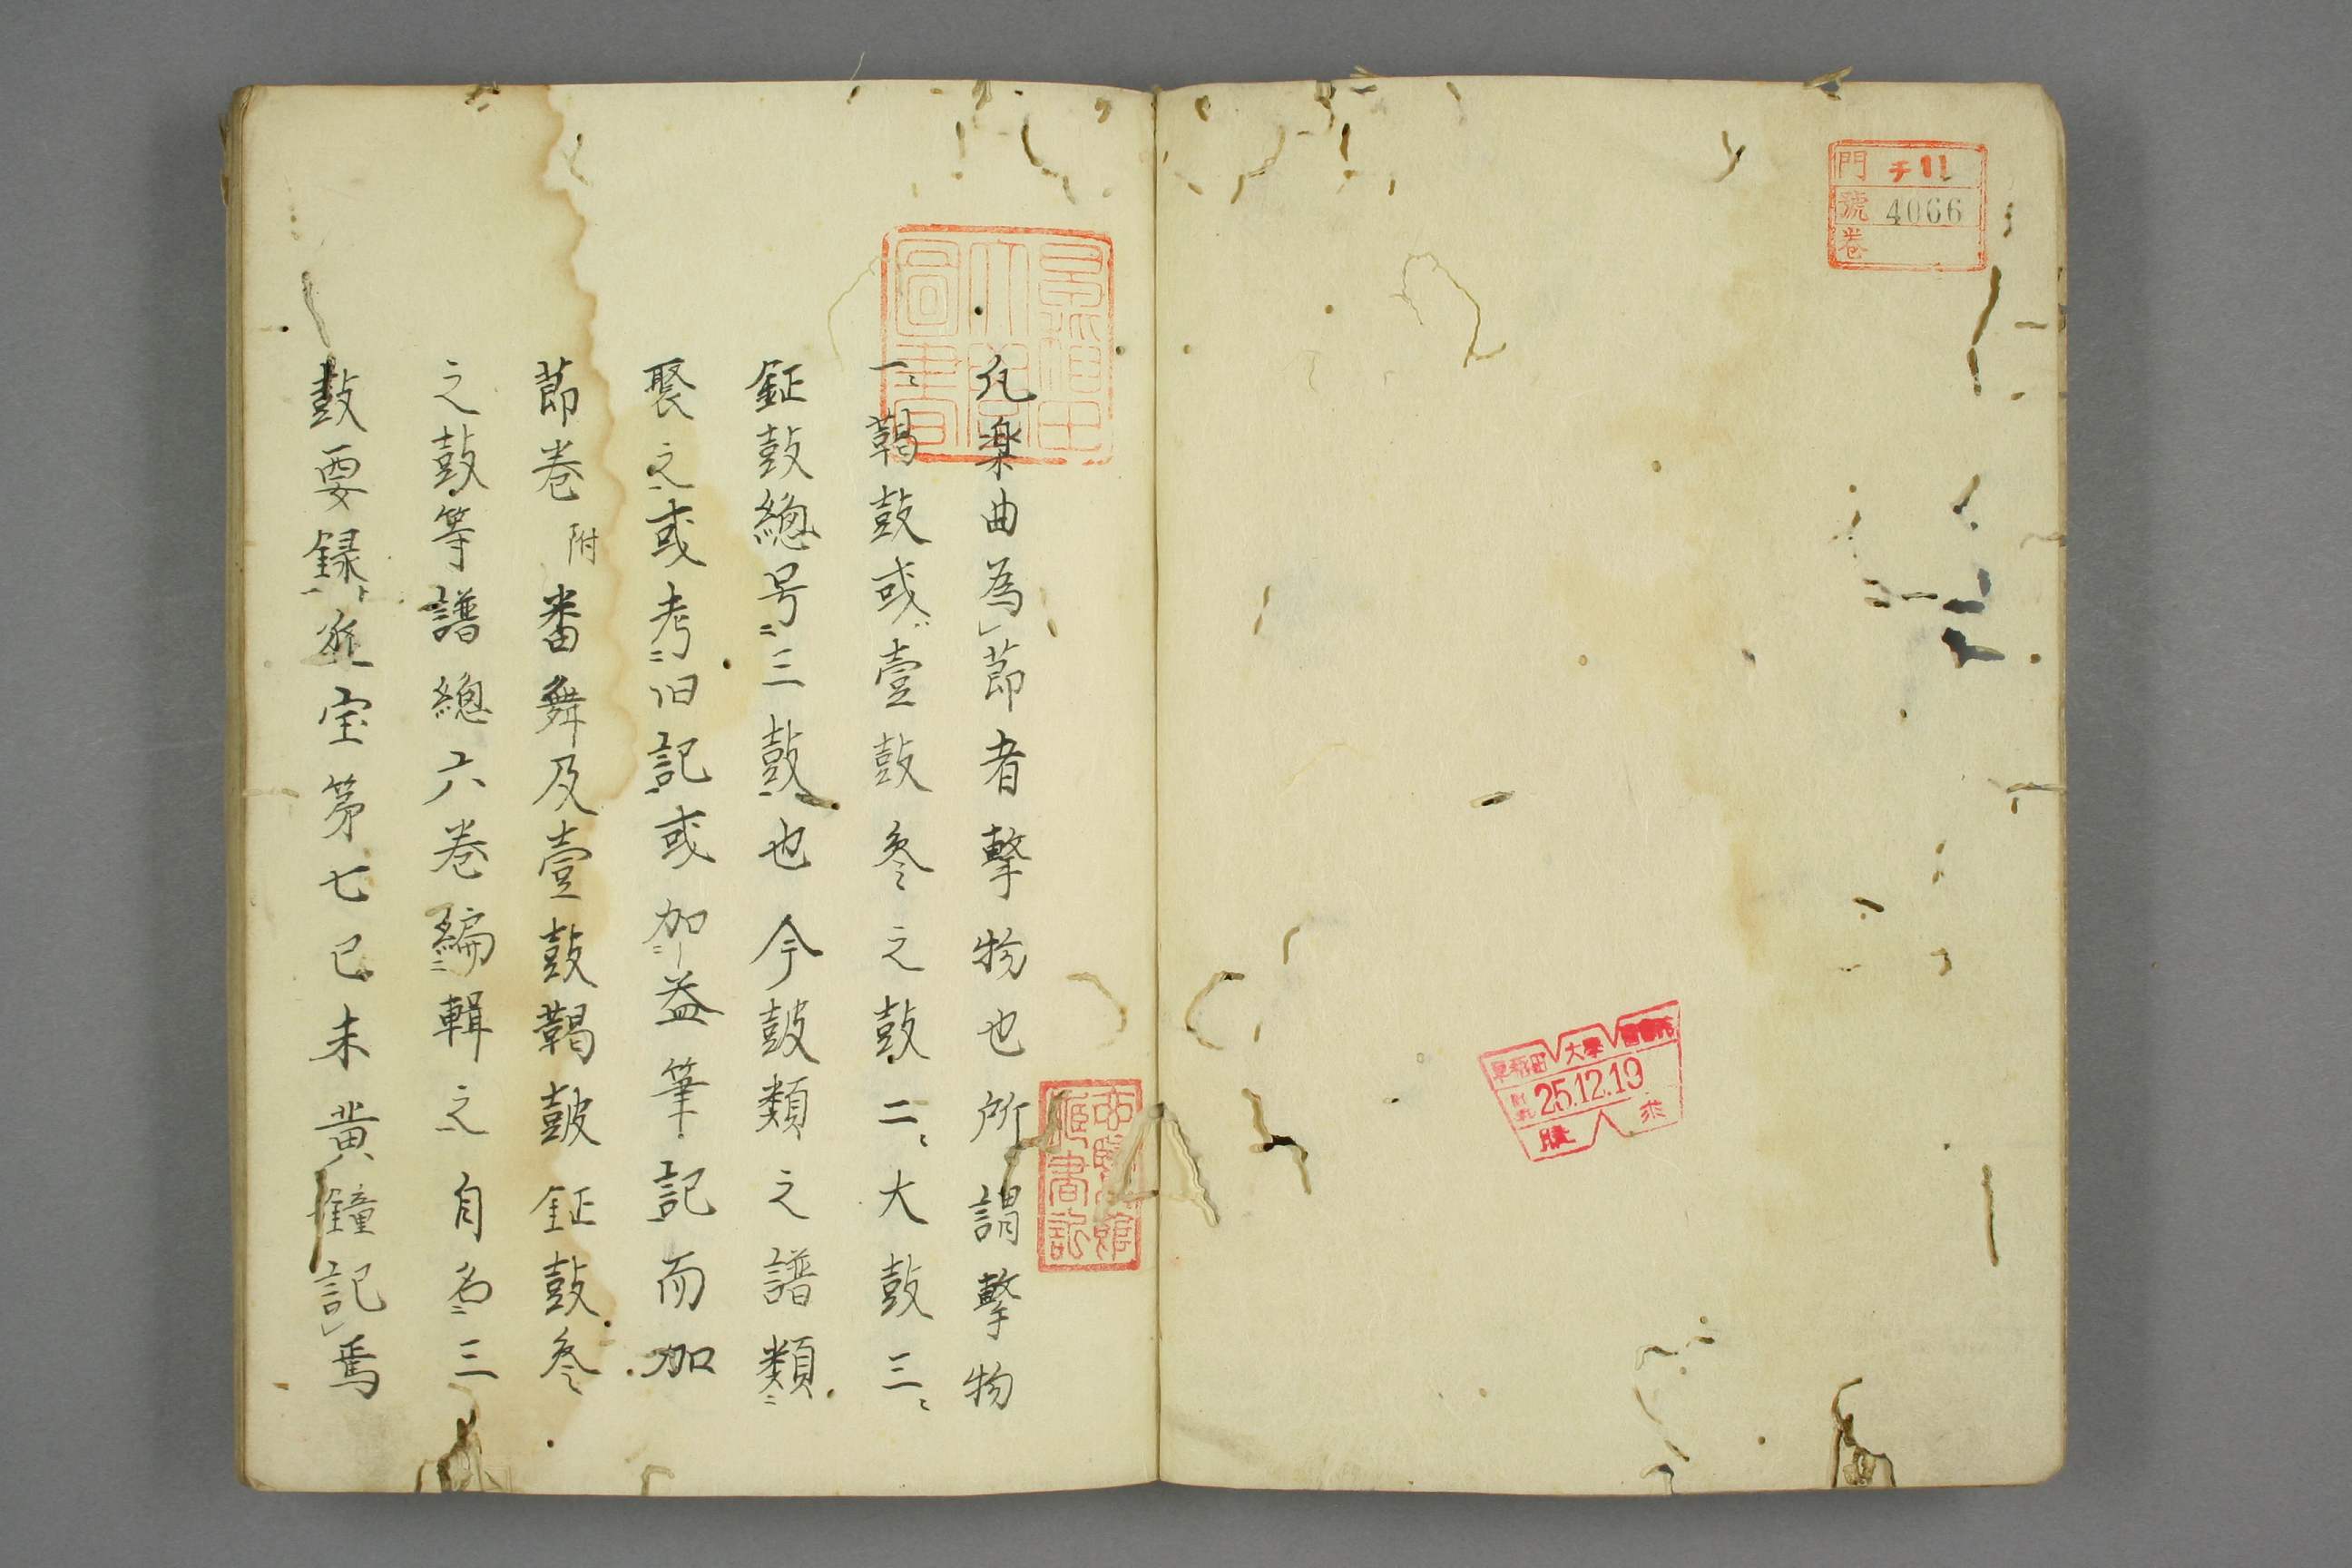 門 チ11
號 4066
卷
早稻田大學圖書館
25.12.19
購求
早稲田大學圖書
凡楽曲為節者擊物也所謂擊物
一、鞨鼓或壹鼓叄之鼓二、大鼓三、
鉦鼓總号三鼓也今鼓類之譜類
聚之或考旧記或加益筆記而加
節卷附番舞及壹鼓鞨鼓鉦鼓叄
之鼓等譜總六卷編輯之自名三
鼓要録延宝第七己未黄鐘記焉